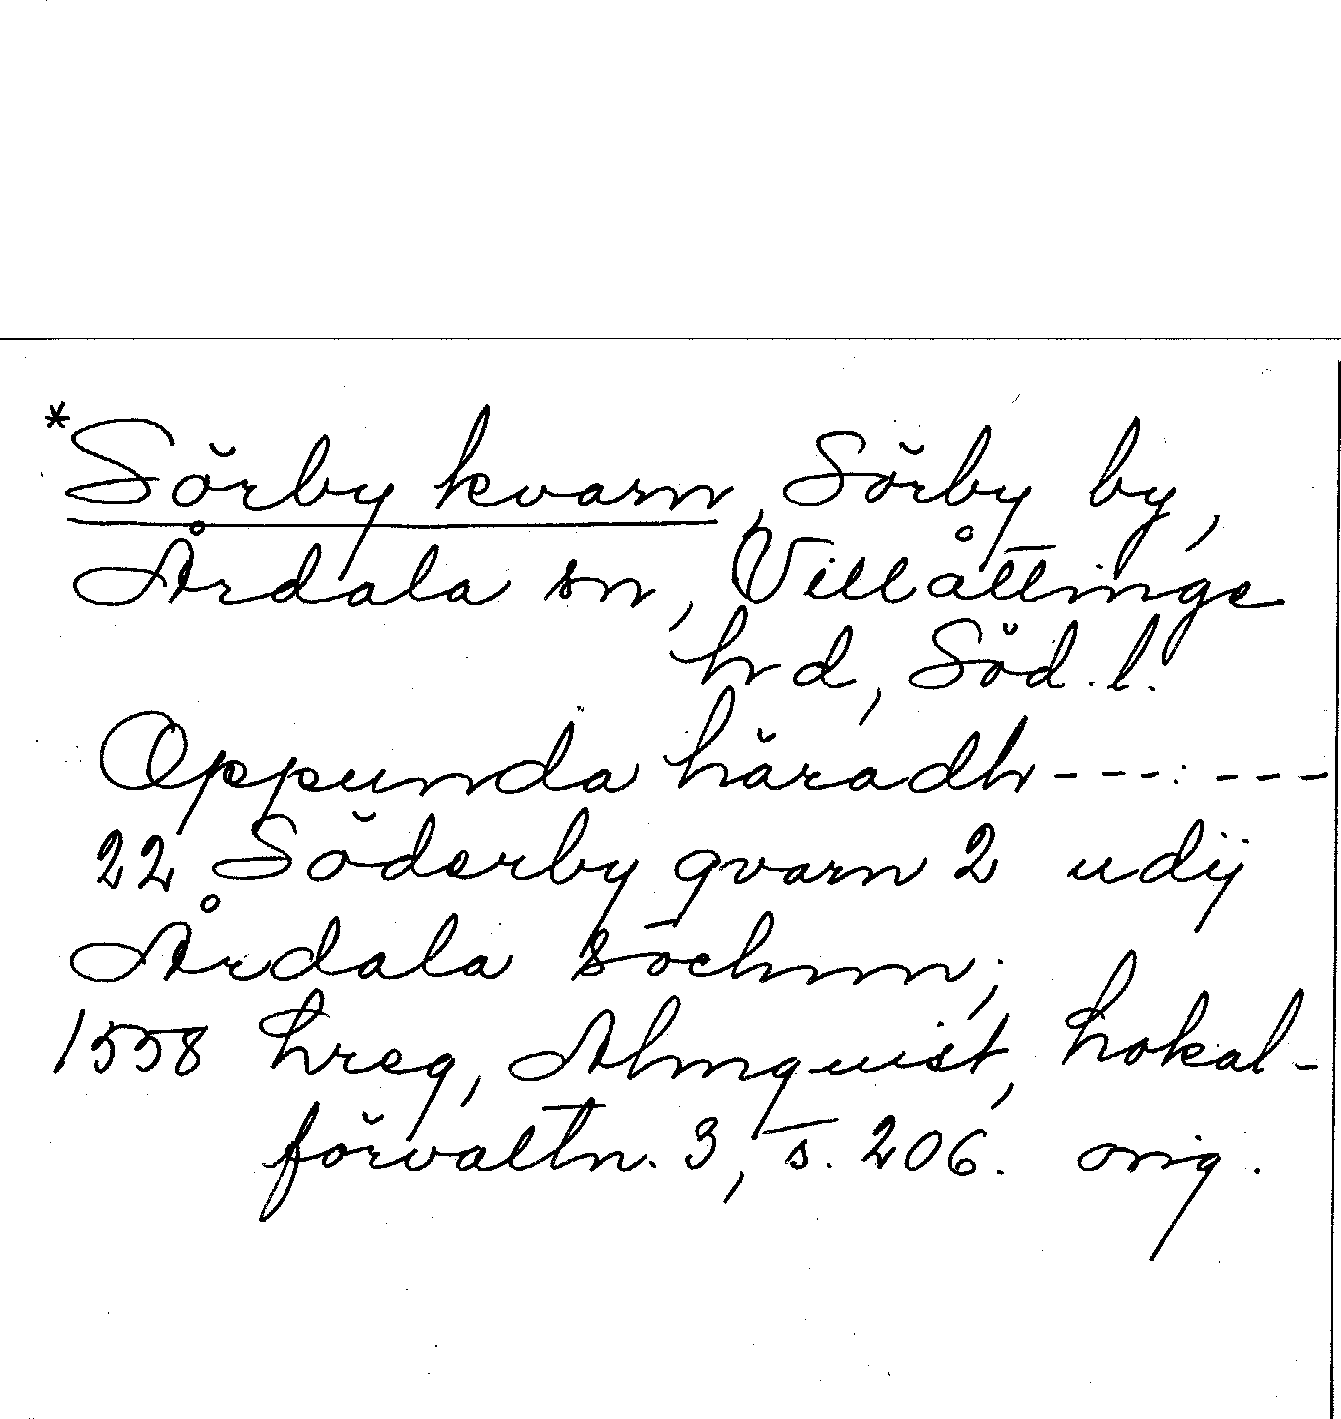 *Sörby kvarn, Sörby by,
Årdala sn, Villåttinge
hrd, Söd. l.
Oppunda häradh - - - : - - -
22 Söderby qvarn 2 udij
Årdala sochnn;
1558 hreg, Almquist, Lokal-
förvaltn. 3, s. 206. orig.